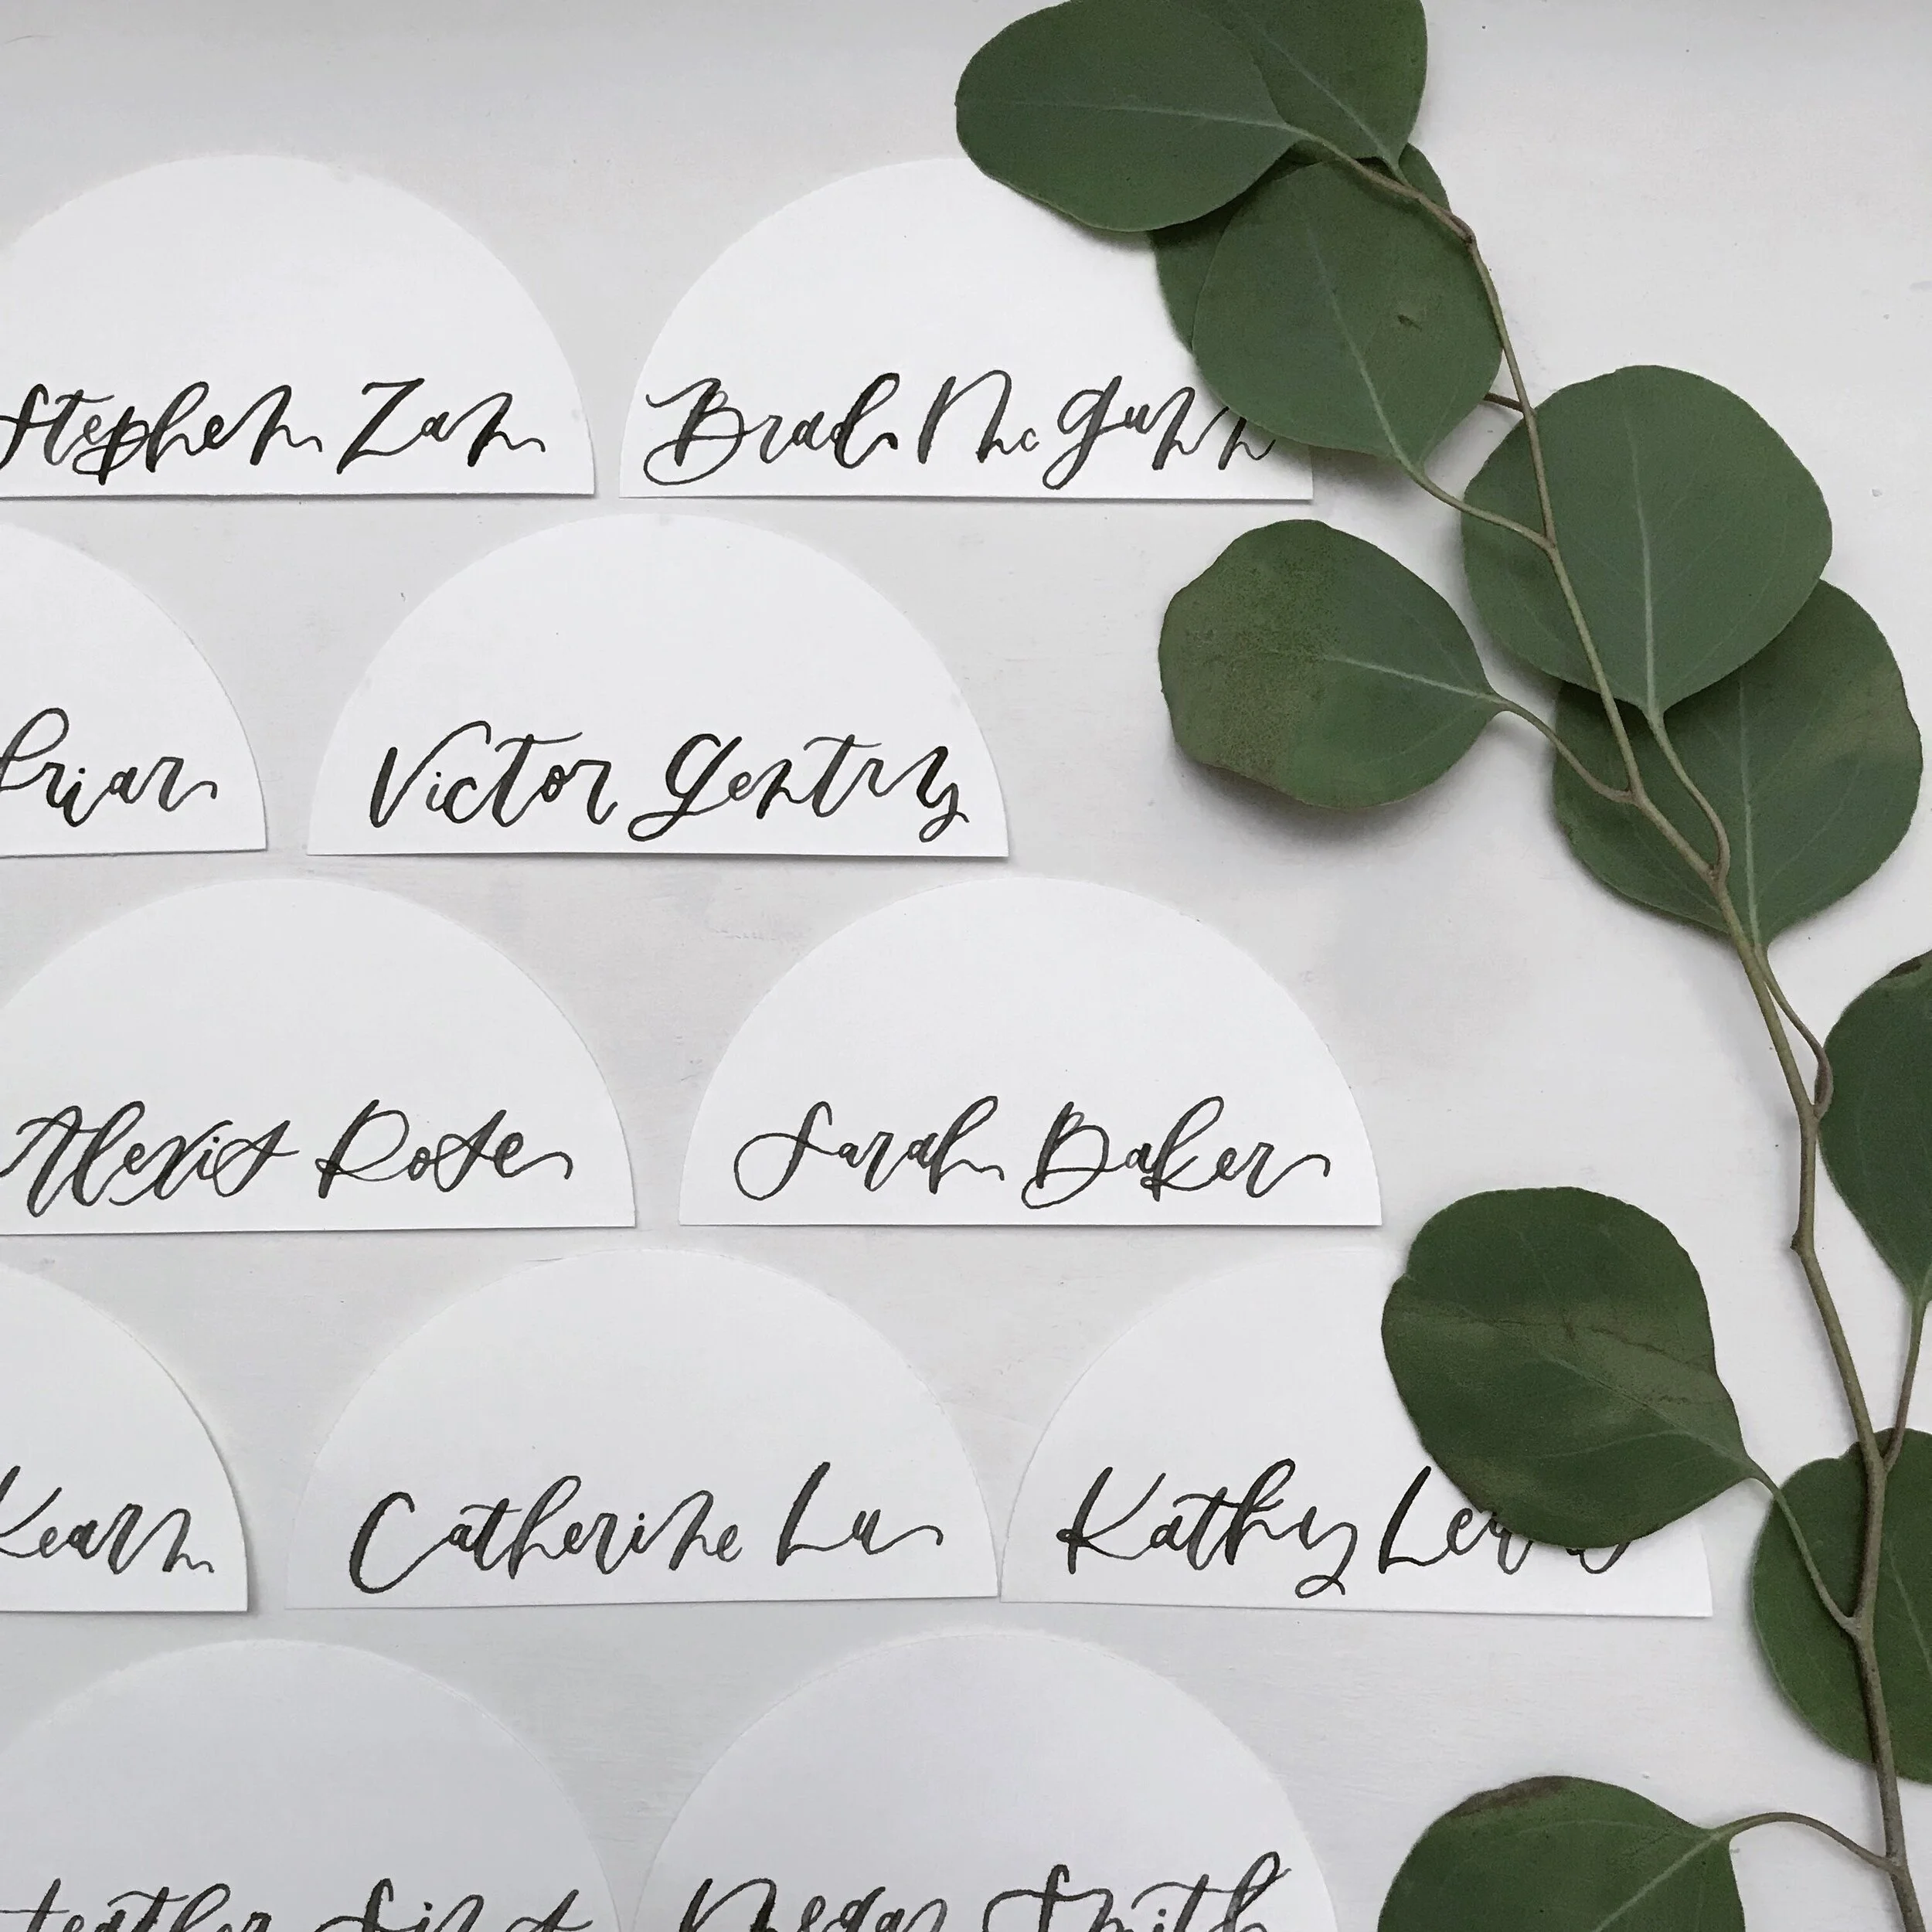 Stephen Zan
Brad McGunn
Victor Gentry
Alexis Rose
Sarah Baker
Kearn
Catherine Lu
Kathy
Megan Smith